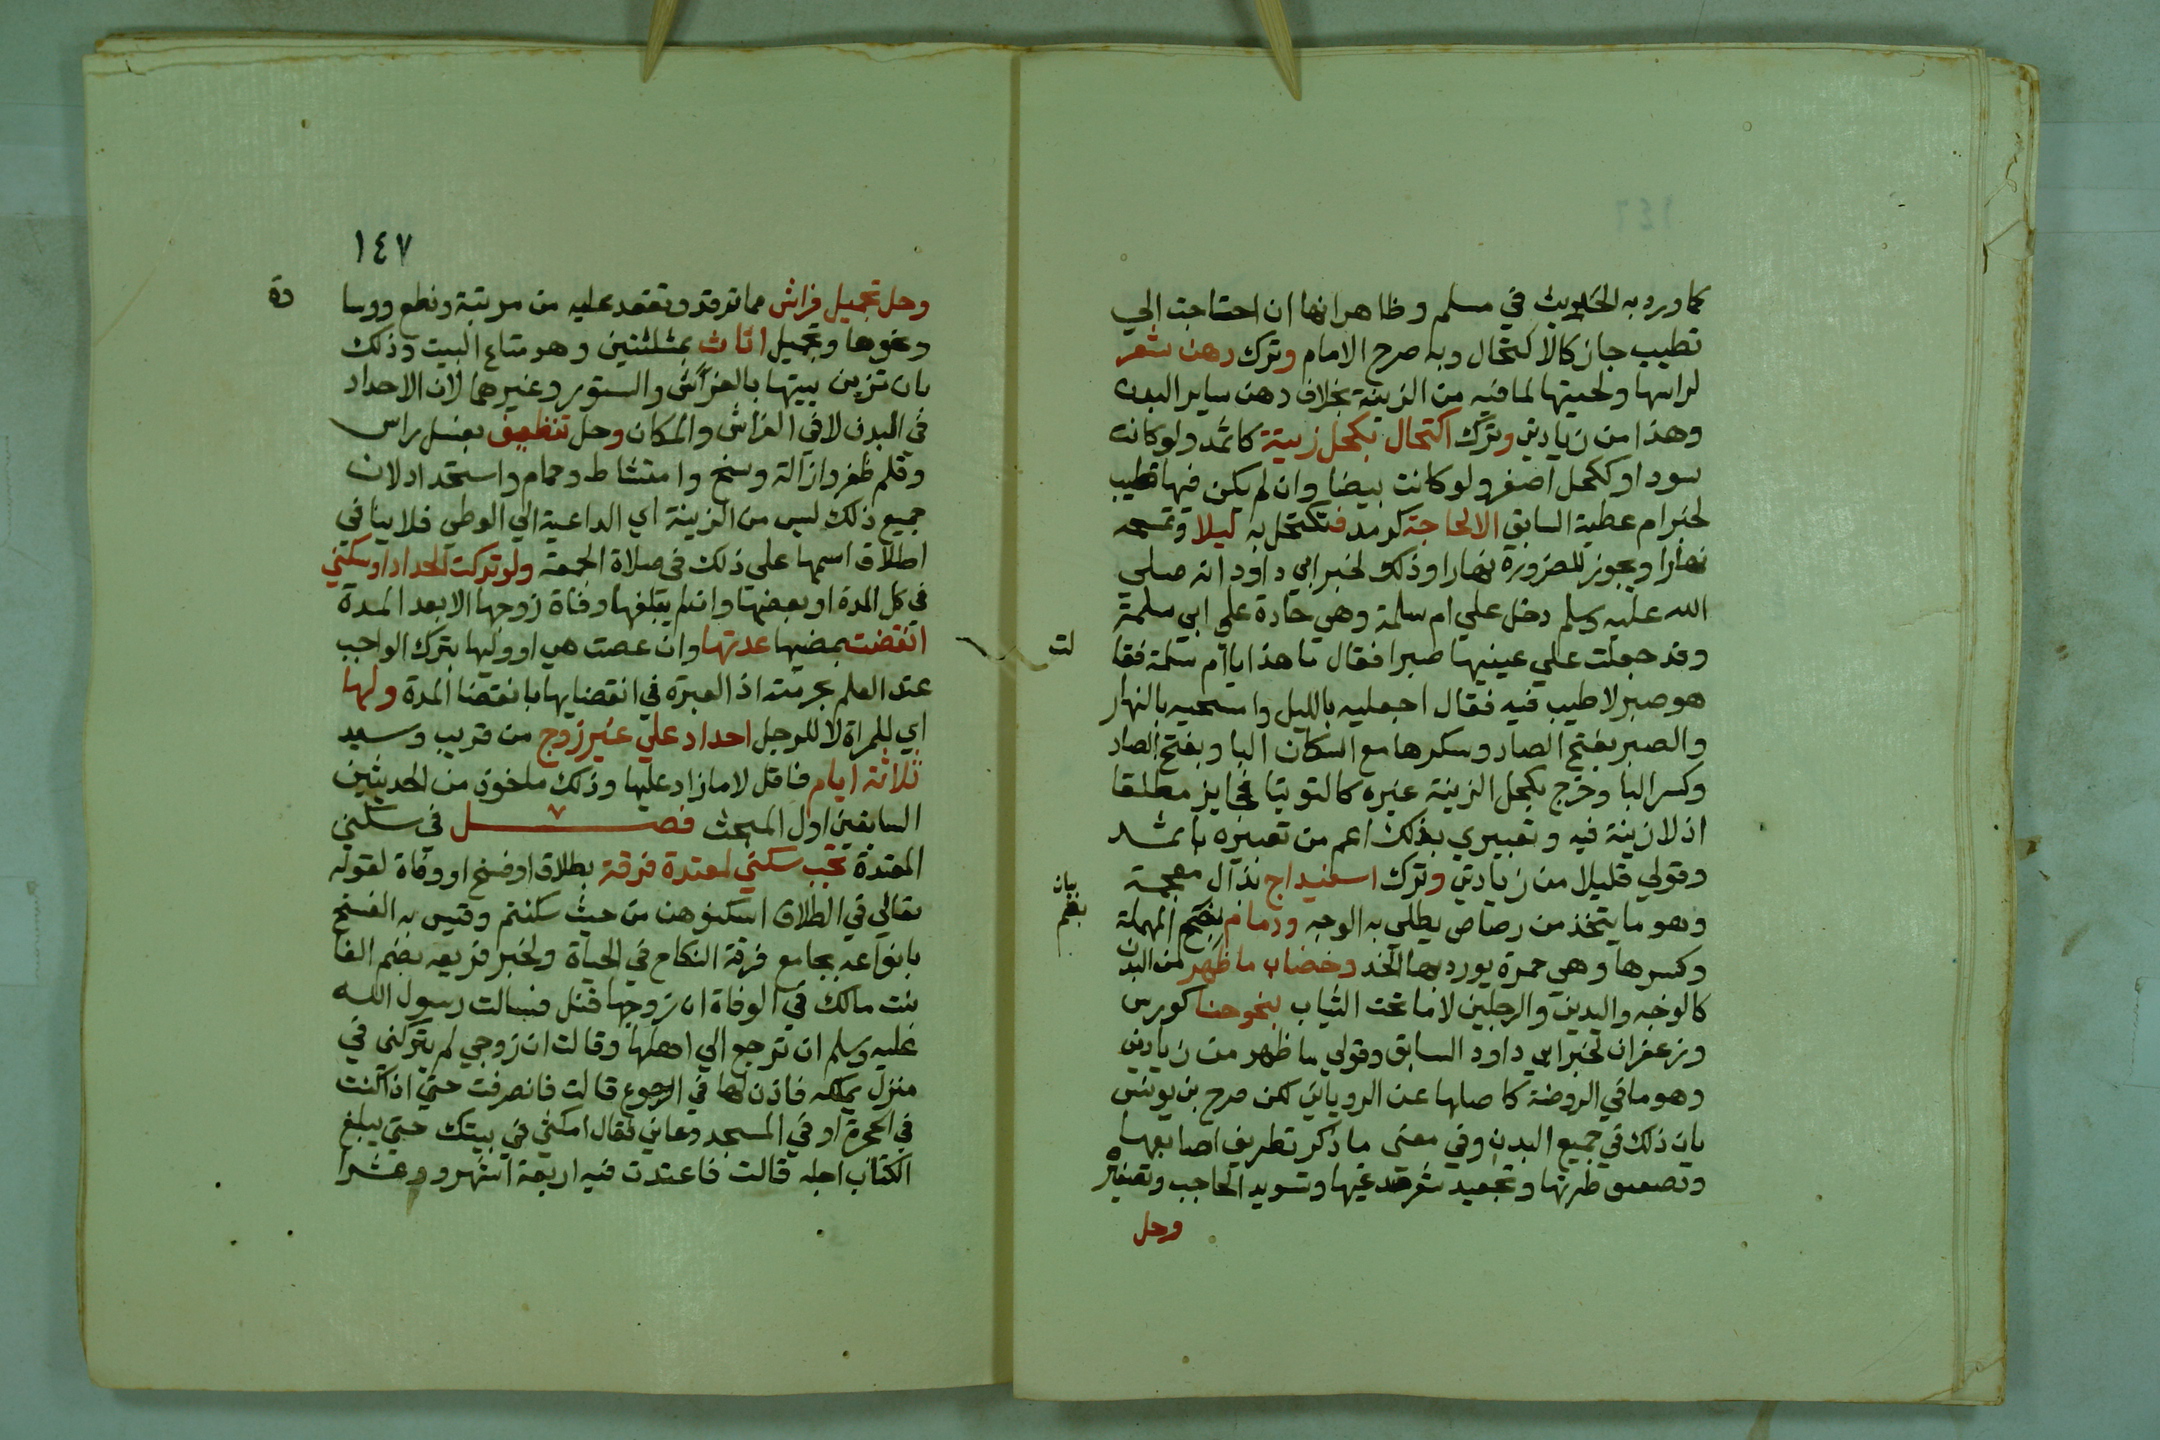 كما ورد به الحديث في مسلم وظاهر انها ان احتاجت الي
تطييب جاز كالاكتحال وبه صرح الامام وترك دهن شعر
لراسها ولحيتها لما فيه من الزينة بخلاف دهن ساير البدن
وهذا من زيادتي وترك اكتحال بكحل زينة كاثمد ولو كانت
سودا وككحل اصفر ولو كانت بيضا وان لم يكن فيها طيب
لخبر ام عطية السابق الا لحاجة كرمد فتكتحل به ليلا وتمسحه
نهارا ويجوز للضرورة نهارا وذلك لخبر ابي داود انه صلي
الله عليه وسلم دخل علي ام سلمة وهي حادة علي ابي سلمة
وقد جعلت علي عينيها صبرا فقال ما هذا يا ام سلمة فقا لت
هو صبر لا طيب فيه فقال اجعليه بالليل وامسحيه بالنهار
والصبر بفتح الصاد وسكرها مع اسكان البا وبفتح الصاد
وكسر البا وخرج بكحل الزينة غيره كالتوتيا فجايز مطلقا
اذ لا زينة فيه وتعبيري بذلك اعم من تعبيره باثمد
وقولي قليلا من زيادتي وترك اسفيداج بذال معجمة
وهو ما يتخذ من رصاص يطلي به الوجه ودمام بضم المهملة
بيان
بضم
وكسرها وهي حمرة يورد بها الخد وخضاب ما ظهر من البدن
كالوجه واليدين والرجلين لا ما تحت الثياب بنحو حنا كورس
وزعفران لخبر ابي داود السابق وقولي ما ظهر من زيادتي
وهو ما في الروضة كاصلها عن الروياني لكن صرح بن يونس
بان ذلك في جميع البدن وفي معنى ما ذكر تطريف اصابعها
وتصفيف طرتها وتجعيد شعر صدغيها وتسويد الحاجب وتصغيره
وحل
١٤٧
وحل تجميل فراش مما ترقد وتقعد عليه من مرتبة ونطع ووسا دة
ونحوها وتجميل اثاث بمثلثتين وهو متاع البيت وذلك
بان تزين بيتها بالفراش والستور وغيرهما لان الاحداد
في البدن لا في الفراش والمكان وحل تنظيف بغسل راس
وقلم ظفر وازالة وسخ وامتشاط وحمام واستحداد لان
جميع ذلك ليس من الزينة اي الداعية الي الوطي فلا ينافي
اطلاق اسمها علي ذلك في صلاة الجمعة ولو تركت احداد او سكني
في كل المدة او بعضها وان لم يبلغها وفاة زوجها الا بعد المدة
انقضت بمضيها عدتها وان عصت هي او وليها بترك الواجب
عند العلم بحرمته اذ العبرة في انقضايها بانقضا المدة ولها
اي للمراة لا للرجل احداد علي غير زوج من قريب وسيد
ثلاثة ايام فاقل لا ما زاد عليها وذلك ماخوذ من الحديثين
السابقين اول المبحث فصل في سكني
المعتدة تجب سكني لمعتدة فرقة بطلاق او فسخ او وفاة لقوله
تعالي في الطلاق اسكنوهن من حيث سكنتم وقيس به الفسخ
بانواعه بجامع فرقة النكاح في الحياة ولخبر فريعه بضم الفا
بنت مالك في الوفاة ان زوجها قتل فسالت رسول الله
عليه وسلم ان ترجع الي اهلها وقالت ان زوجي لم يتركني في
منزل يملكه فاذن لها في الرجوع قالت فانصرفت حتي اذا كنت
في الحجرة او في المسجد دعاني فقال امكثي في بيتك حتي يبلغ
الكتاب اجله قالت فاعتدت فيه اربعة اشهر وعشرا